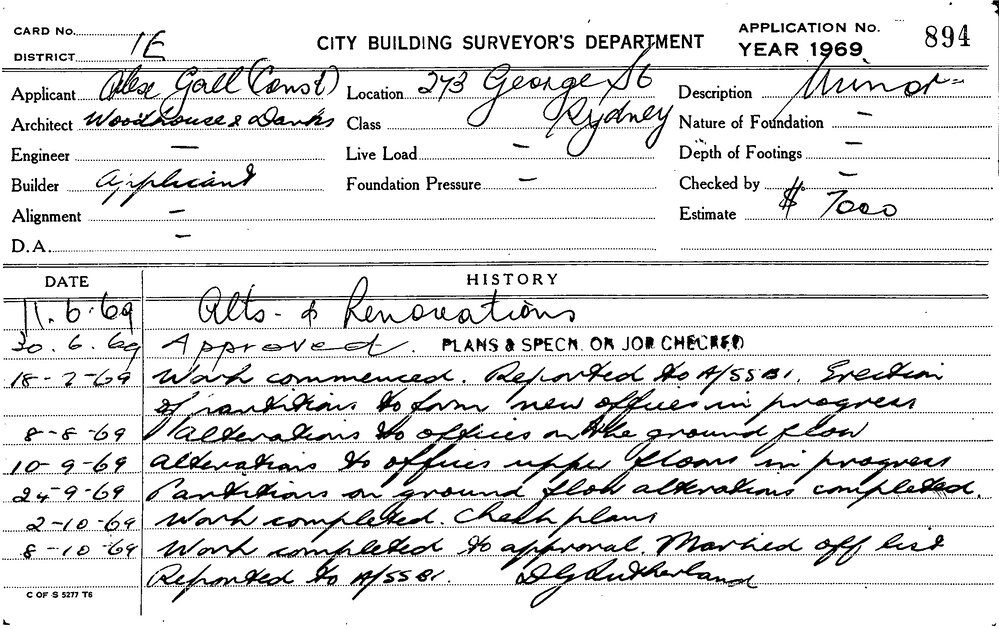 CARD No.
DISTRICT 1E
CITY BUILDING SURVEYOR'S DEPARTMENT
APPLICATION No. 894
YEAR 1969
Applicant Alex Gall (Const) Location 273 George St Description Minor
Architect Woodhouse & Danks Class Sydney Nature of Foundation —
Engineer — Live Load — Depth of Footings —
Builder Applicant Foundation Pressure — Checked by —
Alignment — Estimate $ 7000
D.A. —
DATE HISTORY
11.6.69 Alts - & Renovations
30.6.69 Approved. PLANS & SPECN. ON JOB CHECKED
18-7-69 Work commenced. Reported to A/SSBI. Erection
of partitions to form new offices in progress
8-8-69 Alterations to offices on the ground floor
10-9-69 Alterations to offices upper floors in progress
24-9-69 Partitions on ground floor alterations completed.
2-10-69 Work completed. Check plans
8-10-69 Work completed to approval. Marked off list
Reported to A/SSBI. DG Sutherland
C OF S 5277 T6